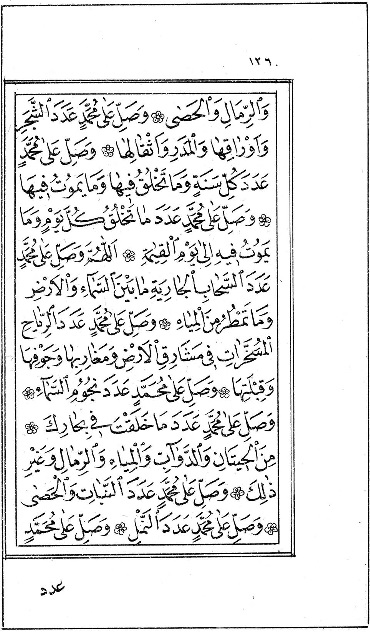 ١٢٦
وَالرِّمَالِ وَالْحَصٰى ۞ وَصَلِّ عَلٰى مُحَمَّدٍ عَدَدَ الشَّجَرِ
وَاَوْرَاقِهَا وَالْمَدَرِ وَاَثْقَالِهَا ۞ وَصَلِّ عَلٰى مُحَمَّدٍ
عَدَدَ كُلِّ سَنَةٍ وَمَا تَخْلُقُ فِيهَا وَمَا يَمُوتُ فِيهَا
۞ وَصَلِّ عَلٰى مُحَمَّدٍ عَدَدَ مَا تَخْلُقُ كُلَّ يَوْمٍ وَمَا
يَمُوتُ فِيهِ اِلٰى يَوْمِ الْقِيٰمَةِ ۞ اَللّٰهُمَّ وَصَلِّ عَلٰى مُحَمَّدٍ
عَدَدَ السَّحَابِ الْجَارِيَةِ مَا بَيْنَ السَّمَآءِ وَالْاَرْضِ
وَمَا تَمْطُرُ مِنَ الْمِيَاهِ ۞ وَصَلِّ عَلٰى مُحَمَّدٍ عَدَدَ الرِّيَاحِ
الْمُسَخَّرَاتِ فِى مَشَارِقِ الْاَرْضِ وَمَغَارِبِهَا وَجَوْفِهَا
وَقِبْلَتِهَا ۞ وَصَلِّ عَلٰى مُحَمَّدٍ عَدَدَ نُجُومِ السَّمَآءِ ۞
وَصَلِّ عَلٰى مُحَمَّدٍ عَدَدَ مَا خَلَقْتَ فِى بِحَارِكَ ۞
مِنَ الْحِيتَانِ وَالدَّوَآبِّ وَالْمِيَاهِ وَالرِّمَالِ وَغَيْرِ
ذٰلِكَ ۞ وَصَلِّ عَلٰى مُحَمَّدٍ عَدَدَ النَّبَاتِ وَالْحَصٰى
۞ وَصَلِّ عَلٰى مُحَمَّدٍ عَدَدَ النَّمْلِ ۞ وَصَلِّ عَلٰى مُحَمَّدٍ
عدد